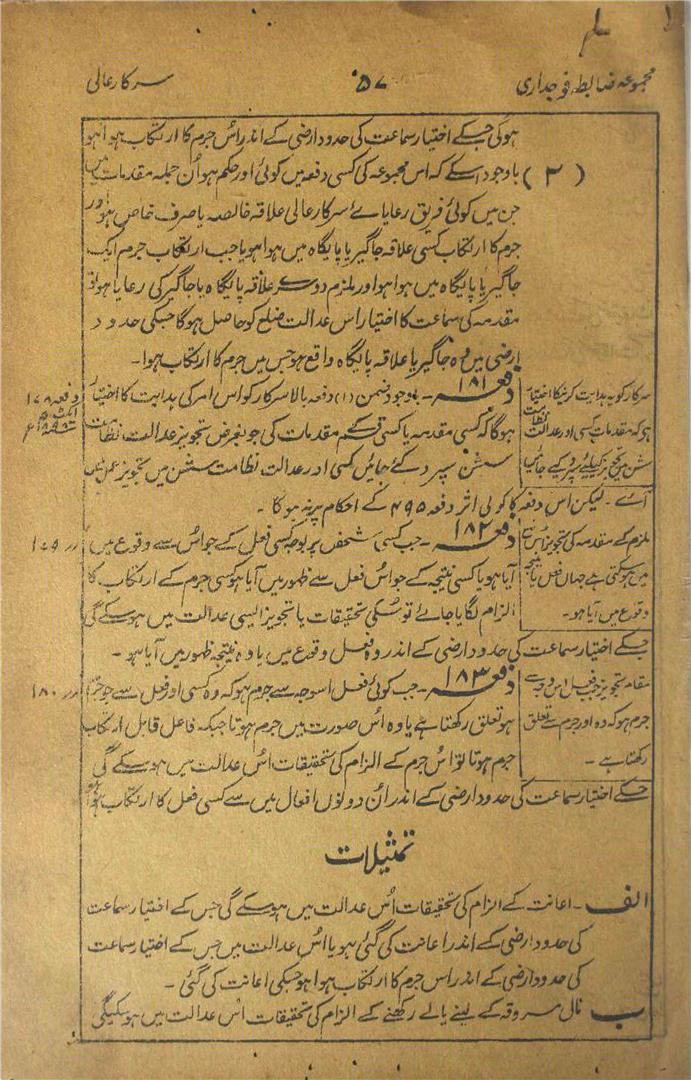 مجموعہ ضابطہ فوجداری
۵۷
سرکار عالی
ہوگی جسکے اختیار سماعت کی حدود ارضی کے اندر اُس جرم کا ارتکاب ہوا ہو
(۲) باوجود اسکے کہ اس مجموعہ کی کسی دفعہ میں کوئی اور حکم ہو اُن جملہ مقدمات میں
جن میں کوئی فریق رعایائے سرکار عالی علاقہ خالصہ یا صرف خاص ہو اور
جرم کا ارتکاب کسی علاقہ جاگیر یا پایگاہ میں ہوا ہو یا جب ارتکاب جرم ایک
جاگیر یا پایگاہ میں ہوا ہو اور ملزم دوسرے علاقہ پایگاہ یا جاگیر کی رعایا ہو تو
مقدمہ کی سماعت کا اختیار اس عدالت ضلع کو حاصل ہوگا جسکی حدود
ارضی میں وہ جاگیر یا علاقہ پایگاہ واقع ہو جس میں جرم کا ارتکاب ہوا۔
سرکار کو یہ ہدایت کرنیکا اختیار
ہی کہ مقدمات کسی اور عدالت نظامت
سشن میں تجویز کیلئے سپرد کیے جائیں
دفعہ ۱۷۸
دفعہ ۱۸۱ ۔ باوجود ضمن (۱) دفعہ بالا سرکار کو اس امر کی ہدایت کا اختیار
ہوگا کہ کسی مقدمہ یا کسی قسم مقدمات کی جو بغرض تجویز عدالت نظامت
سشن سپرد کئے جائیں کسی اور عدالت نظامت سشن میں تجویز عمل میں
آئے ۔ لیکن اس دفعہ کا کوئی اثر دفعہ ۴۹۵ کے احکام پر نہ ہوگا ۔
ملزم کے مقدمہ کی تجویز اُس ضلع
میں ہوسکتی ہے جہاں فعل یا نتیجہ
وقوع میں آیا ہو۔
〃 ۱۷۹
دفعہ ۱۸۲ ۔ جب کسی شخص پر بوجہ کسی فعل کے جو اُس سے وقوع میں
آیا ہو یا کسی نتیجہ کے جو اُس فعل سے ظہور میں آیا ہو کسی جرم کے ارتکاب کا
الزام لگایا جائے تو اُسکی تحقیقات یا تجویز ایسی عدالت میں ہوسکے گی
جسکے اختیار سماعت کی حدود ارضی کے اندر وہ فعل وقوع میں یا وہ نتیجہ ظہور میں آیا ہو ۔
مقام تجویز جب فعل اس وجہ سے
جرم ہو کہ وہ اور جرم سے تعلق
رکھتا ہے ۔
〃 ۱۸۰
دفعہ ۱۸۳ ۔ جب کوئی فعل اس وجہ سے جرم ہو کہ وہ کسی اور فعل سے جو جرم
ہو تعلق رکھتا ہے یا وہ اُس صورت میں جرم ہوتا جبکہ فاعل قابل ارتکاب
جرم ہوتا تو اُس جرم کے الزام کی تحقیقات اُس عدالت میں ہوسکے گی
جسکے اختیار سماعت کی حدود ارضی کے اندر اُن دونوں افعال میں سے کسی فعل کا ارتکاب ہوا ہو
تمثیلات
الف ۔ اعانت کے الزام کی تحقیقات اُس عدالت میں ہوسکے گی جس کے اختیار سماعت
کی حدود ارضی کے اندر اعانت کی گئی ہو یا اُس عدالت میں جس کے اختیار سماعت
کی حدود ارضی کے اندر اس جرم کا ارتکاب ہوا ہو جسکی اعانت کی گئی ۔
ب ۔ مال مسروقہ کے لینے یا لے رکھنے کے الزام کی تحقیقات اُس عدالت میں ہوسکیگی